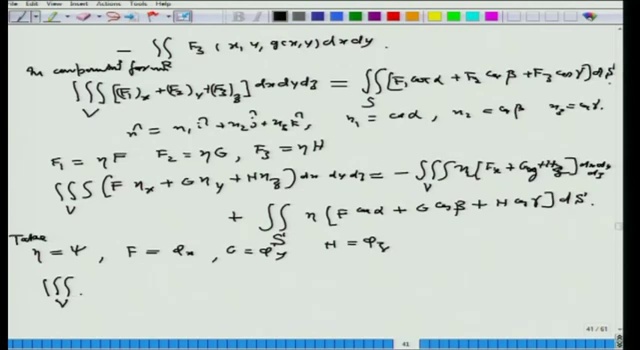 File Edit View Insert Actions Tools Help
- ∬_R F₃ (x, y, g(x, y)) dx dy .
In component form
∭_V [(F₁)_x + (F₂)_y + (F₃)_z] dx dy dz = ∬_S [F₁ cos α + F₂ cos β + F₃ cos γ] dS
n̂ = n₁ î + n₂ ĵ + n₃ k̂, n₁ = cos α, n₂ = cos β n₃ = cos γ.
F₁ = ηF F₂ = ηG, F₃ = ηH
∭_V (F η_x + G η_y + H η_z) dx dy dz = - ∭_V η [F_x + G_y + H_z] dx dy dz
+ ∬_S η [F cos α + G cos β + H cos γ] dS.
Take
η = ψ, F = φ_x, G = φ_y H = φ_z
∭_V .
41 / 61
41